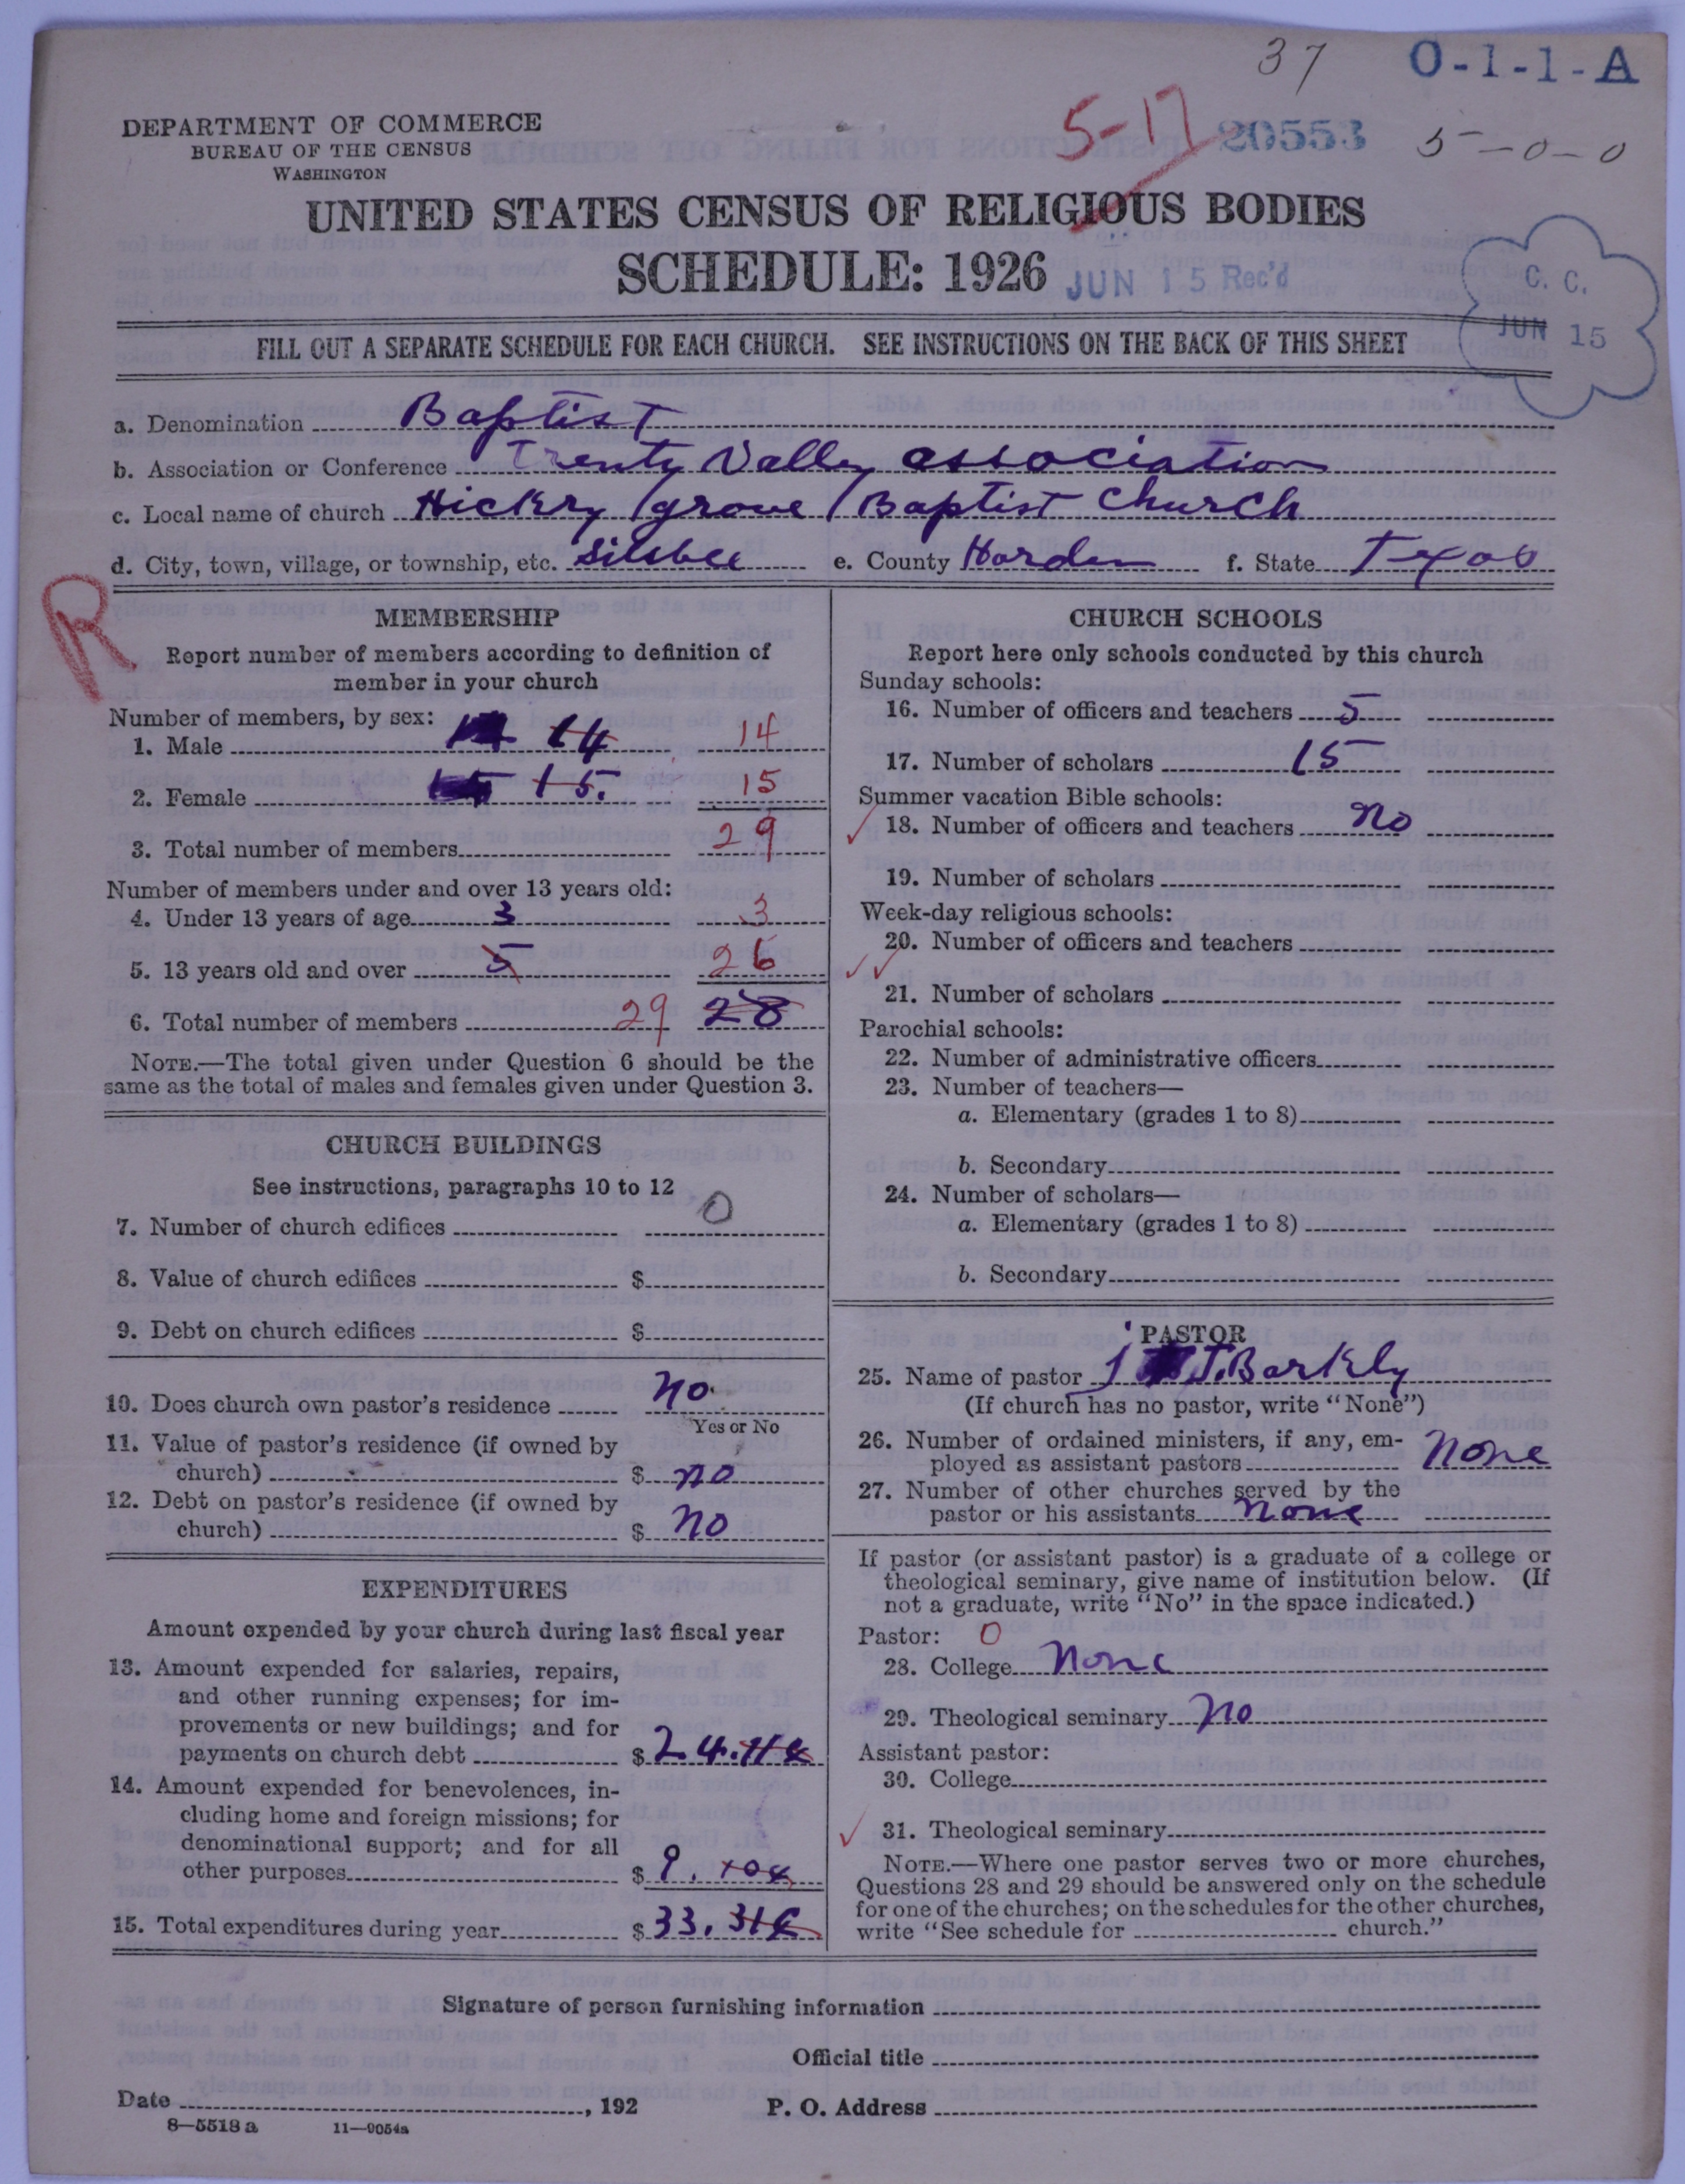 37 O-1-1-A
5-17 20553 5-0-0
DEPARTMENT OF COMMERCE
BUREAU OF THE CENSUS
WASHINGTON
UNITED STATES CENSUS OF RELIGIOUS BODIES
SCHEDULE: 1926 JUN 15 Rec'd
C. C.
JUN 15
FILL OUT A SEPARATE SCHEDULE FOR EACH CHURCH. SEE INSTRUCTIONS ON THE BACK OF THIS SHEET
a. Denomination Baptist
b. Association or Conference Trenty Valley association
c. Local name of church Hickry grove Baptist Church
d. City, town, village, or township, etc. Silsbee e. County Harden f. State Texas
R
MEMBERSHIP
Report number of members according to definition of
member in your church
Number of members, by sex:
1. Male 14 14
2. Female 15. 15
3. Total number of members 29
Number of members under and over 13 years old:
4. Under 13 years of age 3 3
5. 13 years old and over 5 26
6. Total number of members 29 28
NOTE.—The total given under Question 6 should be the
same as the total of males and females given under Question 3.
CHURCH BUILDINGS
See instructions, paragraphs 10 to 12
7. Number of church edifices 0
8. Value of church edifices $
9. Debt on church edifices $
10. Does church own pastor's residence no.
Yes or No
11. Value of pastor's residence (if owned by
church) $ no
12. Debt on pastor's residence (if owned by
church) $ no
EXPENDITURES
Amount expended by your church during last fiscal year
13. Amount expended for salaries, repairs,
and other running expenses; for im-
provements or new buildings; and for
payments on church debt $ 24.
14. Amount expended for benevolences, in-
cluding home and foreign missions; for
denominational support; and for all
other purposes $ 9.
15. Total expenditures during year $ 33.
CHURCH SCHOOLS
Report here only schools conducted by this church
Sunday schools:
16. Number of officers and teachers 5
17. Number of scholars 15
Summer vacation Bible schools:
18. Number of officers and teachers no
19. Number of scholars
Week-day religious schools:
20. Number of officers and teachers
21. Number of scholars
Parochial schools:
22. Number of administrative officers
23. Number of teachers—
a. Elementary (grades 1 to 8)
b. Secondary
24. Number of scholars—
a. Elementary (grades 1 to 8)
b. Secondary
PASTOR
25. Name of pastor J. Barkly
(If church has no pastor, write "None")
26. Number of ordained ministers, if any, em-
ployed as assistant pastors none
27. Number of other churches served by the
pastor or his assistants none
If pastor (or assistant pastor) is a graduate of a college or
theological seminary, give name of institution below. (If
not a graduate, write "No" in the space indicated.)
Pastor: 0
28. College None
29. Theological seminary no
Assistant pastor:
30. College
31. Theological seminary
NOTE.—Where one pastor serves two or more churches,
Questions 28 and 29 should be answered only on the schedule
for one of the churches; on the schedules for the other churches,
write "See schedule for church."
Signature of person furnishing information
Official title
Date , 192 P. O. Address
8—5518 a 11—9054a